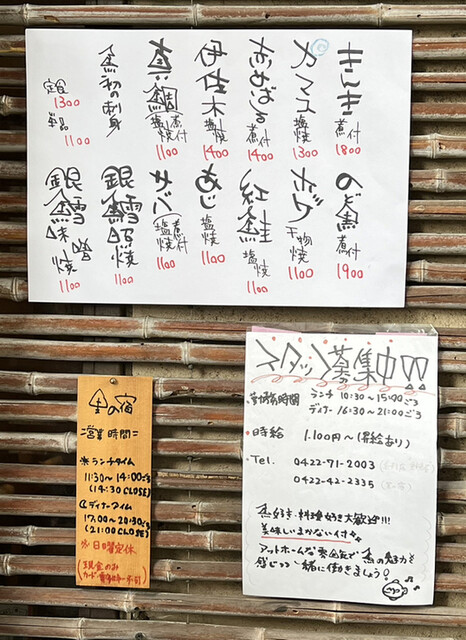 きんき 煮付 1800
カマス 塩焼 1300
赤めばる 煮付 1400
伊佐木 塩焼 1400
真鯛 煮付 塩焼 1100
魚の刺身
定食 1300
単品 1100
のど黒 煮付 1900
ホッケ 干物焼 1100
紅鮭 塩焼 1100
あじ 塩焼 1100
サバ 煮付 塩焼 1100
銀鱈 西京焼 1100
銀鱈 味噌焼 1100
魚の宿
=営業時間=
※ランチタイム
11:30〜14:00ごろ
(14:30 CLOSE)
ディナータイム
17:00〜20:30ごろ
(21:00 CLOSE)
日曜定休
現金のみ
スタッフ募集中!!
時間 ランチ 10:30〜15:00ごろ
ディナー 16:30〜21:00ごろ
時給 1.100円〜(昇給あり)
Tel. 0422-71-2003
0422-42-2335
魚好き・料理好き大歓迎!!!
美味しいまかない付
アットホームな雰囲気で魚の魅力を
感じつつ一緒に働きましょう!